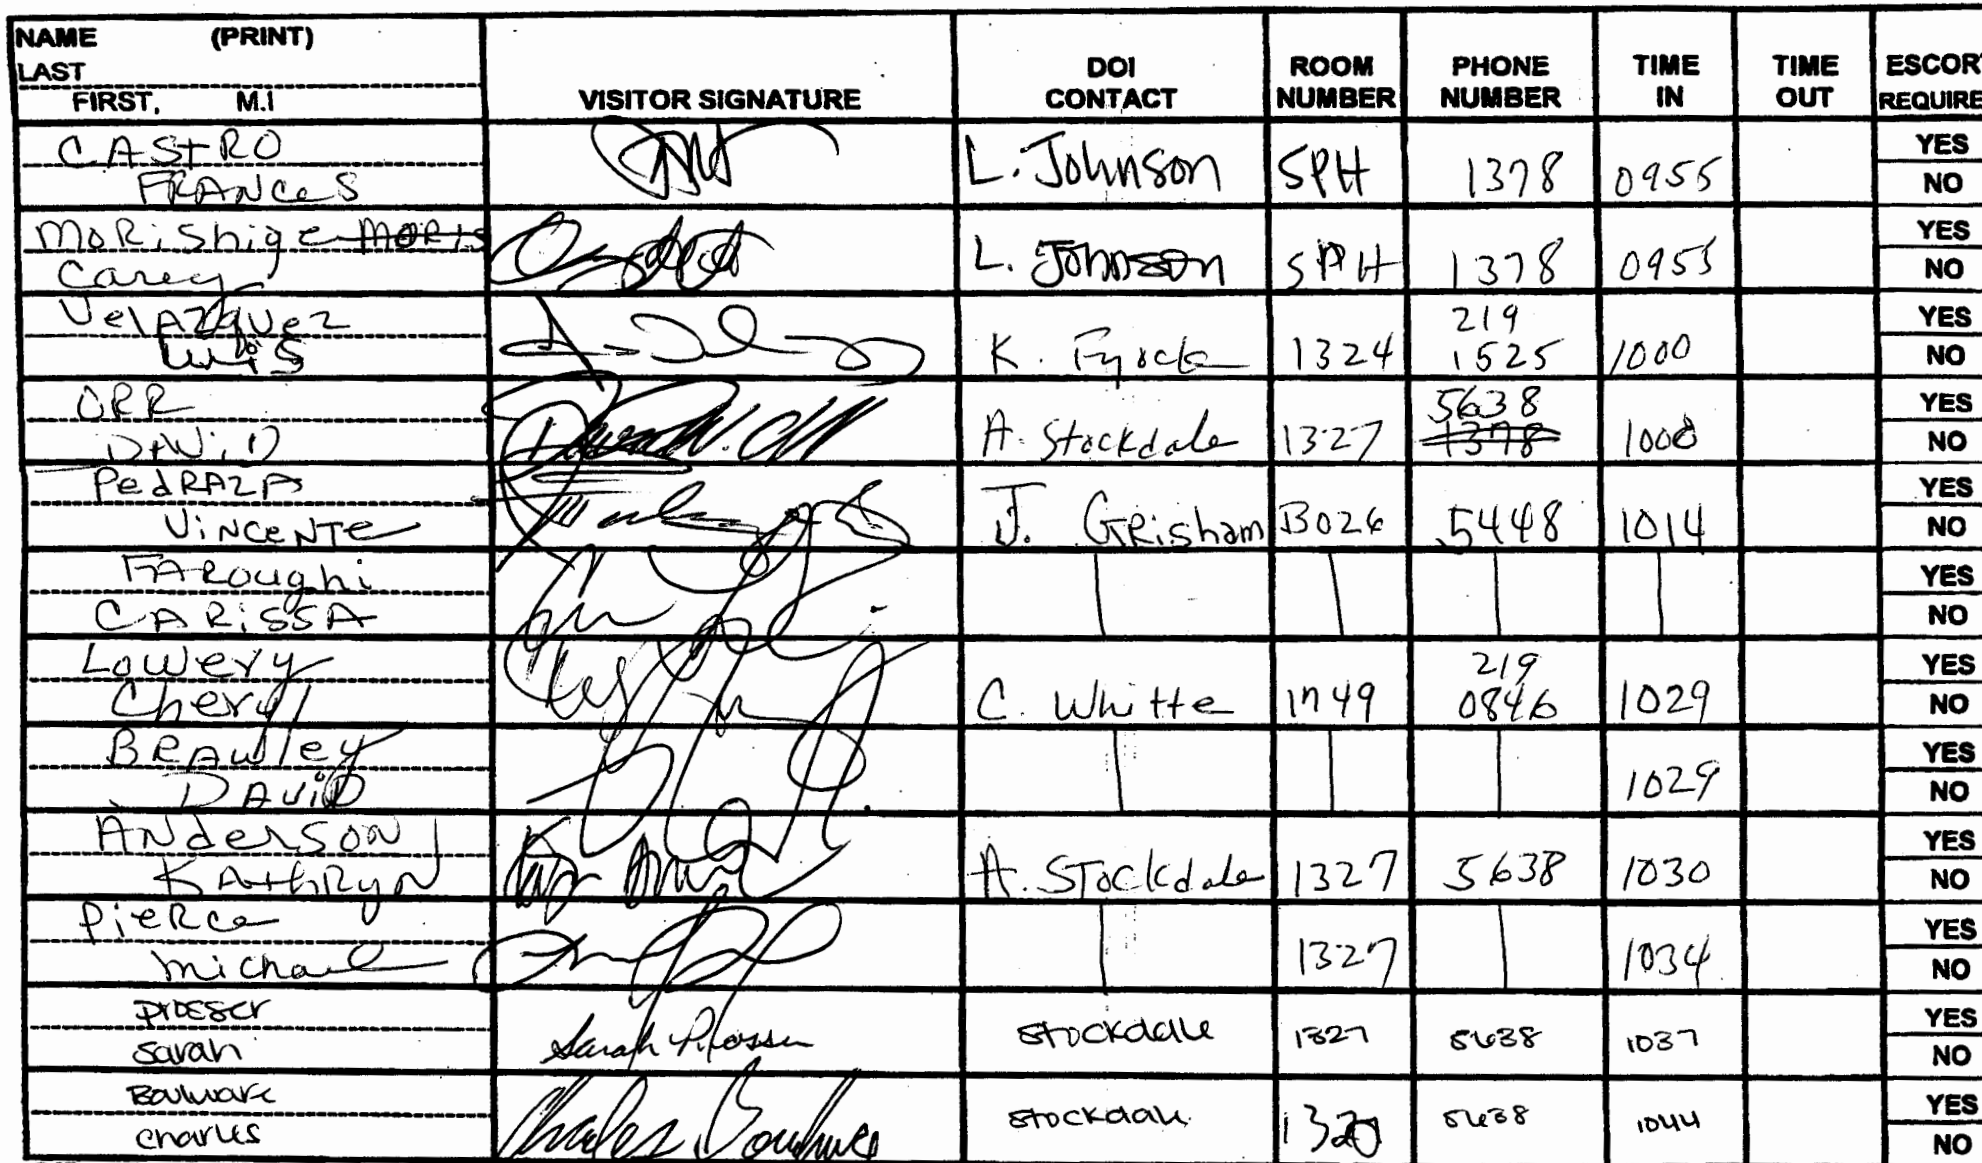 NAME (PRINT)
LAST
FIRST, M.I
VISITOR SIGNATURE
DOI
CONTACT
ROOM
NUMBER
PHONE
NUMBER
TIME
IN
TIME
OUT
ESCORT
REQUIRE
CASTRO
FRANCES
L. Johnson SPH 1378 0955
YES
NO
MORiShige
Carey
L. Johnson SPH 1378 0955
YES
NO
VelAZquez
Luis
K. Fyock 1324 219 1525 1000
YES
NO
ORR
DAViD
A. Stockdale 1327 5638 1378 1000
YES
NO
PedRAZA
ViNCeNTe
J. GRisham B026 5448 1014
YES
NO
FARoughi
CARiSSA
YES
NO
Lowery
Cheryl
C. Whitte 219 0846 1029
YES
NO
BRAwley
DAViD
1029
YES
NO
ANderSON
KAthRyN
A. Stockdale 1327 5638 1030
YES
NO
PieRce
michael
1327 1034
YES
NO
prosser
sarah
Sarah Prosser
stockdale 1327 5638 1037
YES
NO
Boulware
charles
Charles Boulware
stockdale 5638 1044
YES
NO